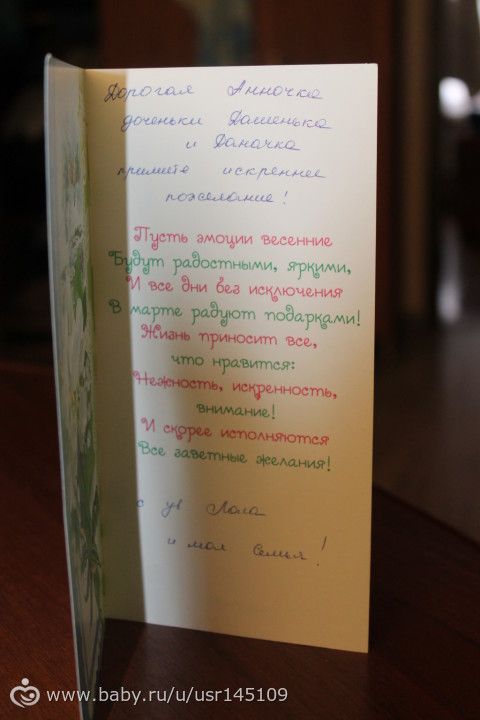 Дорогая Анночка
доченьки Дашенька
и Даночка
примите искреннее
пожелание!
Пусть эмоции весенние
Будут радостными, яркими,
И все дни без исключения
В марте радуют подарками!
Жизнь приносит все,
что нравится:
Нежность, искренность,
внимание!
И скорее исполняются
Все заветные желания!
с ув Лола
и моя Семья!
www.baby.ru/u/usr145109